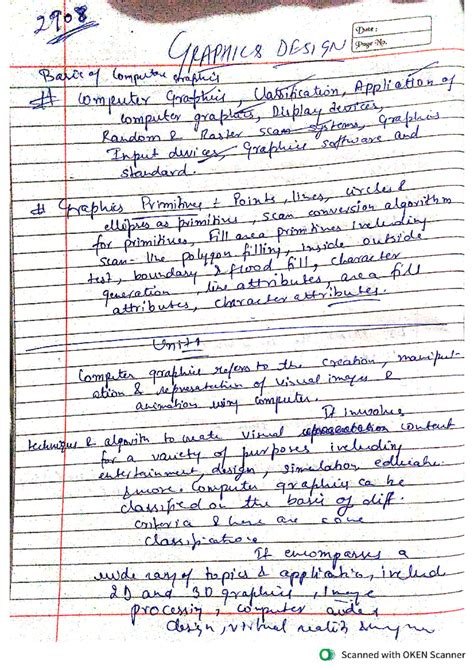 2908
Date :
Page No.
GRAPHICS DESIGN
Basic of Computer Graphics
# Computer Graphics, Classification, Application of
computer graphics, Display devices,
Random & Raster scan systems, Graphics
Input devices, Graphics software and
standard.
# Graphics Primitives : Points, lines, circles &
ellipses as primitives, scan conversion algorithm
for primitives, Fill area primitives including
scan-line polygon filling, inside outside
test, boundary & flood fill, character
generation, line attributes, area fill
attributes, character attributes.
Unit 1
Computer graphics refers to the creation, manipul-
ation & representation of visual images &
animation using computer.
It involves
technique & algorith to create visual content
for a variety of purposes including
entertainment, design, simulation
& more. Computer graphics ca be
classified on the basis of diff.
criteria & here are some
classification.
It encompasses a
wide range of topics & application, includ
2D and 3D graphics, image
processing, computer aided
design, virtual reality
Scanned with OKEN Scanner